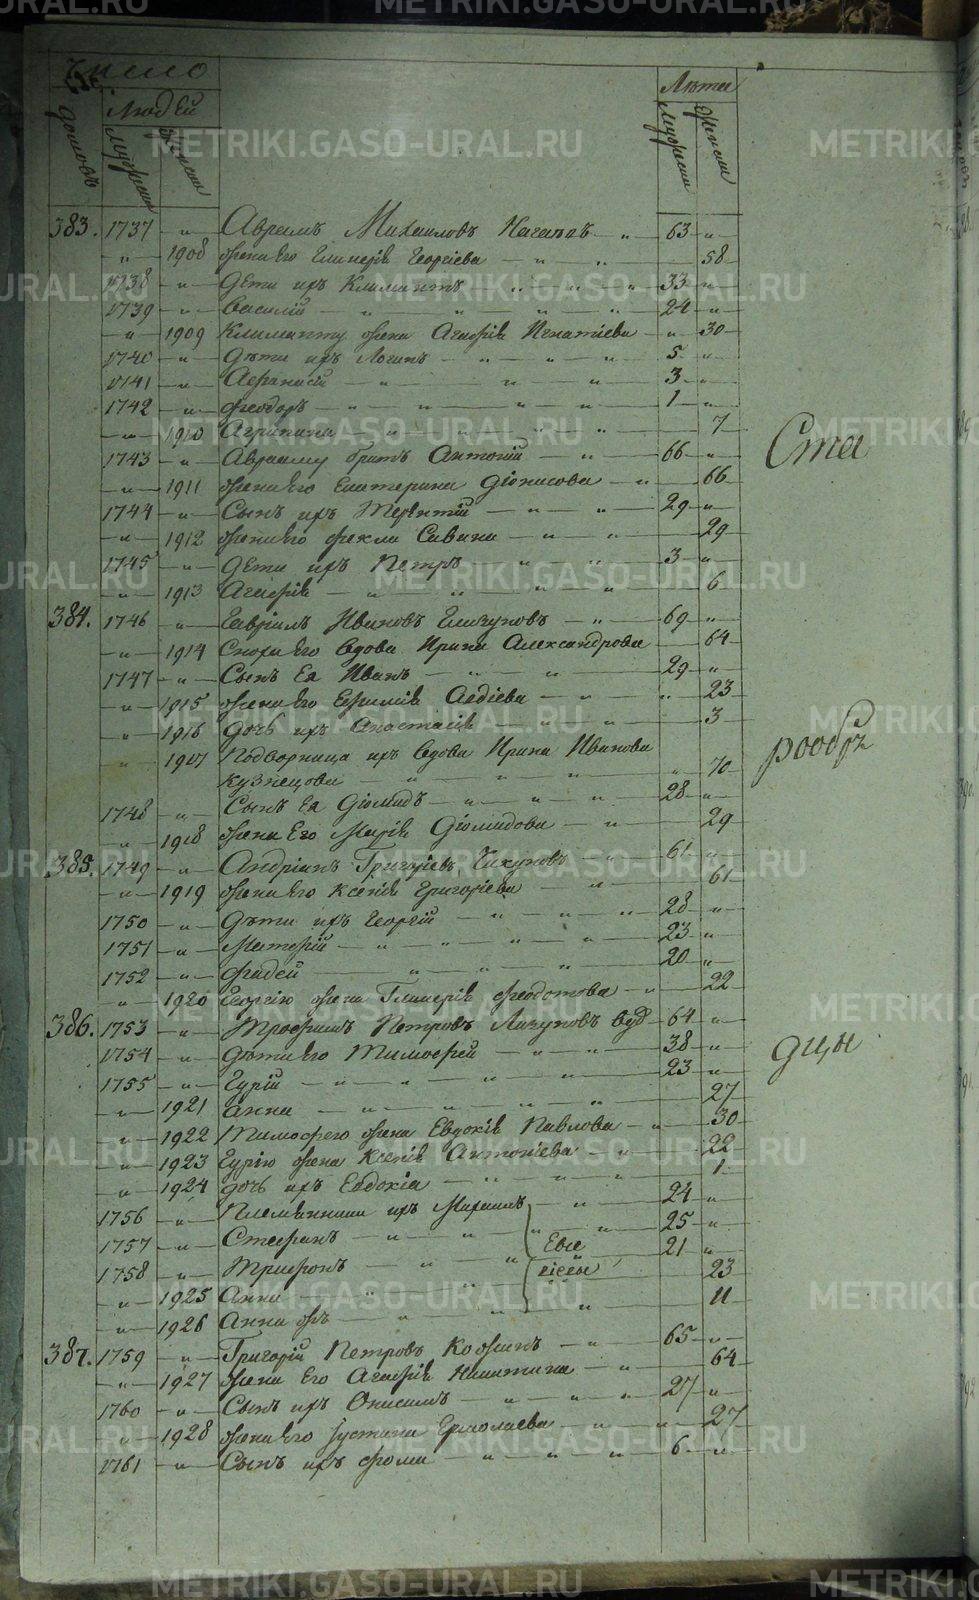 Число
домовъ
Людей
мужеска
женска
Лѣта
мужеска
женска
383. 1737 — " — Авраамъ Михаиловъ Нагаповъ — " — 63 — "
" — 1908 жена его Гликерія Георгіева — " — " — 58
1738 — " — Дѣти ихъ Климантъ — " — " — 33 — "
1739 — " — Василій — " — " — 24 — "
" — 1909 Климанту жена Агафія Игнатіева — " — 30
1740 — " — Дѣти ихъ Логинъ — " — " — 5 — "
1741 — " — Афанасій — " — " — 3 — "
1742 — " — Феодоръ — " — " — 1 — "
" — 1910 Агрипина — " — " — 7
1743 — " — Аврааму братъ Антоній — " — 66 — "
" — 1911 жена его Екатерина Діонисова — " — 66
1744 — " — Сынъ ихъ Терентій — " — " — 29 — "
" — 1912 жена его Фекла Савина — " — " — 29
1745 — " — Дѣти ихъ Петръ — " — " — 3 — "
" — 1913 Агафія — " — " — 6
384. 1746 — " — Гавріилъ Ивановъ — " — 69 — "
" — 1914 Сноха его вдова Ирина Александрова — 64
1747 — " — Сынъ Ея Иванъ — " — " — 29 — "
" — 1915 жена его Ефимія Авдіева — " — " — 23
" — 1916 дочь ихъ Анастасія — " — " — 3
" 1917 Подворница ихъ вдова Ирина Иванова
Кузнецова — " — " — " — 70
1748 — " — Сынъ Ея Діомидъ — " — " — 28 — "
" — 1918 жена Его Марія Діомидова — " — 29
385. 1749 — " — Андріанъ Григорьевъ Чикуновъ — " — 61 — "
" — 1919 жена его Ксенія Григорьева — " — 61
1750 — " — дѣти ихъ Георгій — " — " — 28 — "
1751 — " — Матфій — " — " — 23 — "
1752 — " — Фадей — " — " — 20 — "
" — 1920 Георгію жена Гликерія Феодотова — " — 22
386. 1753 — " — Трофимъ Петровъ Лизуновъ вдд — 64 — "
1754 — " — дѣти его Тимофей — " — " — 38 — "
1755 — " — Гурій — " — " — 23 — "
" — 1921 Анна — " — " — 27
" — 1922 Тимофею жена Евдокія Павлова — " — 30
" — 1923 Гурію жена Ксенія Антоніева — " — 22
" — 1924 дочь ихъ Евдокія — " — " — 1
1756 — " — Племянники ихъ Михаилъ — " — 24 — "
1757 — " — Стефанъ — " — " — 25 — "
1758 — " — Трифонъ — " — " — 21 — "
" — 1925 Анна — " — 23
" — 1926 Анна жъ — " — " — 11
387. 1759 — " — Григорій Петровъ Кожинъ — " — 65 — "
" — 1927 жена Его Агафія Никитина — " — 64
1760 — " — Сынъ ихъ Онисимъ — " — " — 27 — "
" — 1928 жена его Іустина Ермолаева — " — 27
1761 — " — Сынъ ихъ Фома — " — " — 6 — "
Ста
рообр
дцы
METRIKI.GASO-URAL.RU